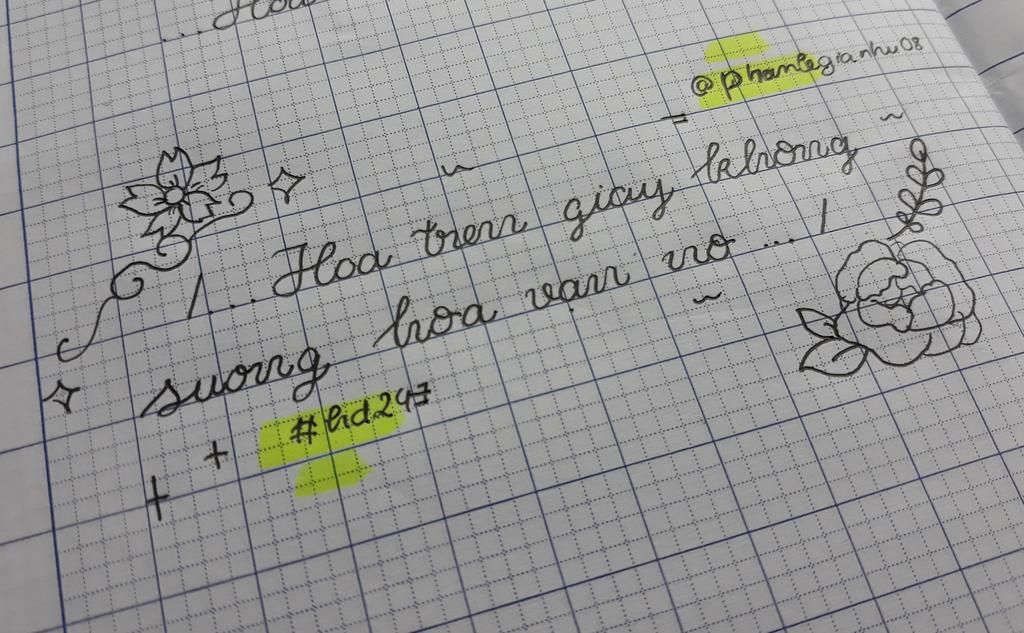 ...Hoa
@phanlegianhu08
/... Hoa tren giay khong
suong hoa vạn no ... /
#hid247